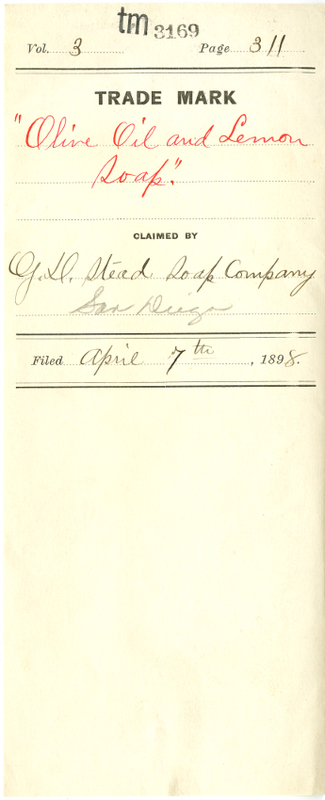 tm 3169
Vol. 3 Page 311
TRADE MARK
"Olive Oil and Lemon
Soap".
CLAIMED BY
G. H. Stead Soap Company
San Diego
Filed April 7th, 1898.